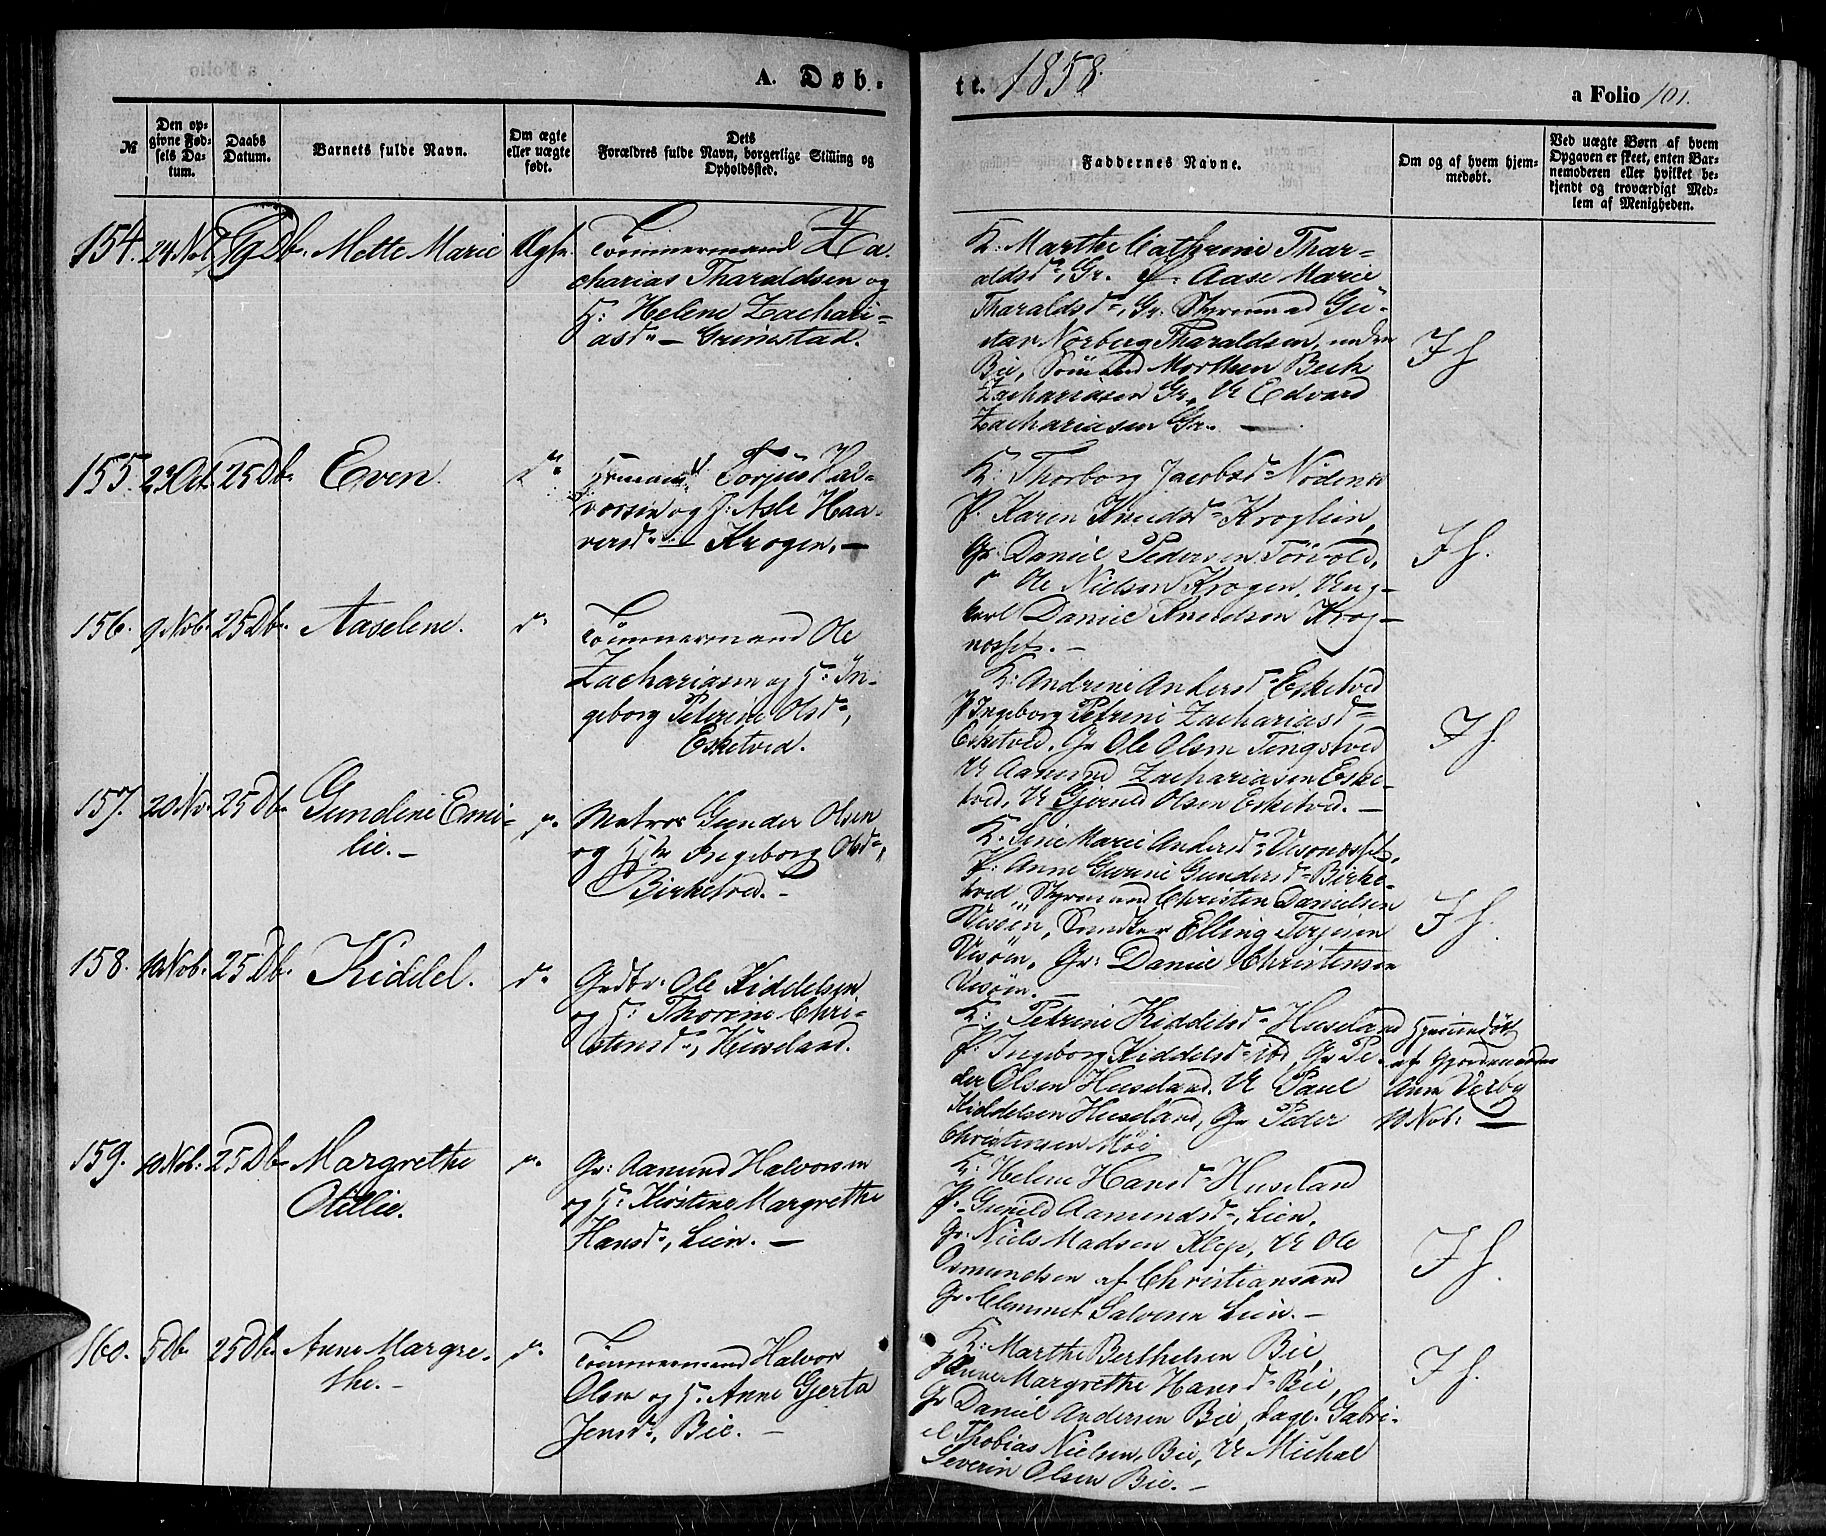 A. Døb-
te. 1858.
a Folio 101.
№
Den op-
givne Fød-
sels Da-
tum.
Daabs
Datum.
Barnets fulde Navn.
Om ægte
eller uægte
født.
Dets
Forældres fulde Navn, borgerlige Stilling og
Opholdssted.
Faddernes Navne.
Om og af hvem hjem-
medøbt.
Ved uægte Børn af hvem
Opgaven er skeet, enten Bar-
nemoderen eller hvilket be-
kjendt og troværdigt Med-
lem af Menigheden.
154. 24 Nov Db. Mette Marie Ægte.
Tømmermand Za-
charias Tharaldsen og
H: Helene Zachari-
asd. – Grimstad.
K: Marthe Cathrine Thar-
aldsd., Gr. P: Aase Marie
Tharaldsd., Gr. Styrmand Gu-
stav Norberg Tharaldsen, unden
Bie, Sømand Morthen Beck
Zachariasen Gr., Edvard
Zachariasen Gr. –
I h
155. 25 Db. Even. d.
Torjus Hal-
vorsen og H: Asle Haa-
versd. – Krogen. –
K: Thorborg Jacobsd. Nødenes
P. Karen Knudsd. Kroglien,
Gr Daniel Pedersen Torvold,
Ole Nielsen Krogen, Ung-
karl Daniel Knudsen Krog-
nosset. –
I h.
156. 9 Nob. 25 Db. Aaselene. d.
Tømmermand Ole
Zachariasen og H: In-
geborg Petrine Olsd.,
Esketved.
K: Andrine Andersd. Esketved
P Ingeborg Petrine Zachariasd.
Esketved, Gr Ole Olsen Tingstved
Aamund Zachariasen Eske-
tved, Gjerul Olsen Esketved. –
I h.
157. 20 Nv. 25 Db. Gundine Emi-
lie. –
Matros Gunder Olsen
og H: Ingeborg Olsd.,
Birketved. –
K. Sine Marie Andersd. Visonesset,
P: Anne Gurine Gundersd. Birke-
tved, Styrmand Christen Danielsen
Visøen, Snedker Elling Terjesen
Visøen, Gr: Daniel Christensen
Visøen. –
I h.
158. 10 Nob. 25 Db. Kiddel. d.
Grdbr. Ole Kiddelsen
og H: Thorine Chri-
stensd., Huseland.
K: Petrine Kiddelsd. Huseland
P. Ingeborg Kiddelsd. ibd, Gr Pe-
der Olsen Huseland, Paul
Kiddelsen Huseland, Gr Peder
Christensen Møi
Hjemmedøbt
af Gjordemoder
Anne Verby
10 Nob: –
159. 10 Nob: 25 Db. Margrethe
Otillie.
Gr: Aamund Halvorsen
og H: Kirstine Margrethe
Hansd., Lien. –
K. Helene Hansd. Huseland
P. Gunild Aamundsd., Lien,
Gr: Niels Madsen Klep, Ole
Osmundsen af Christiansand
Gr. Clemmet Salvesen Lien. –
I h.
160. 5 Db 25 Db. Anne Margre-
the. – d.
Tømmermand Halvor
Olsen og H. Anne Gjerta
Jensd., Bie. –
K: Marthe Berthelsen Bie,
P Anne Margrethe Hansd. Bie,
Gr Daniel Andersen Bie, Lage. Gabri-
el Thobias Nielsen, Bie, Michal
Severin Olsen Bie. –
I h.